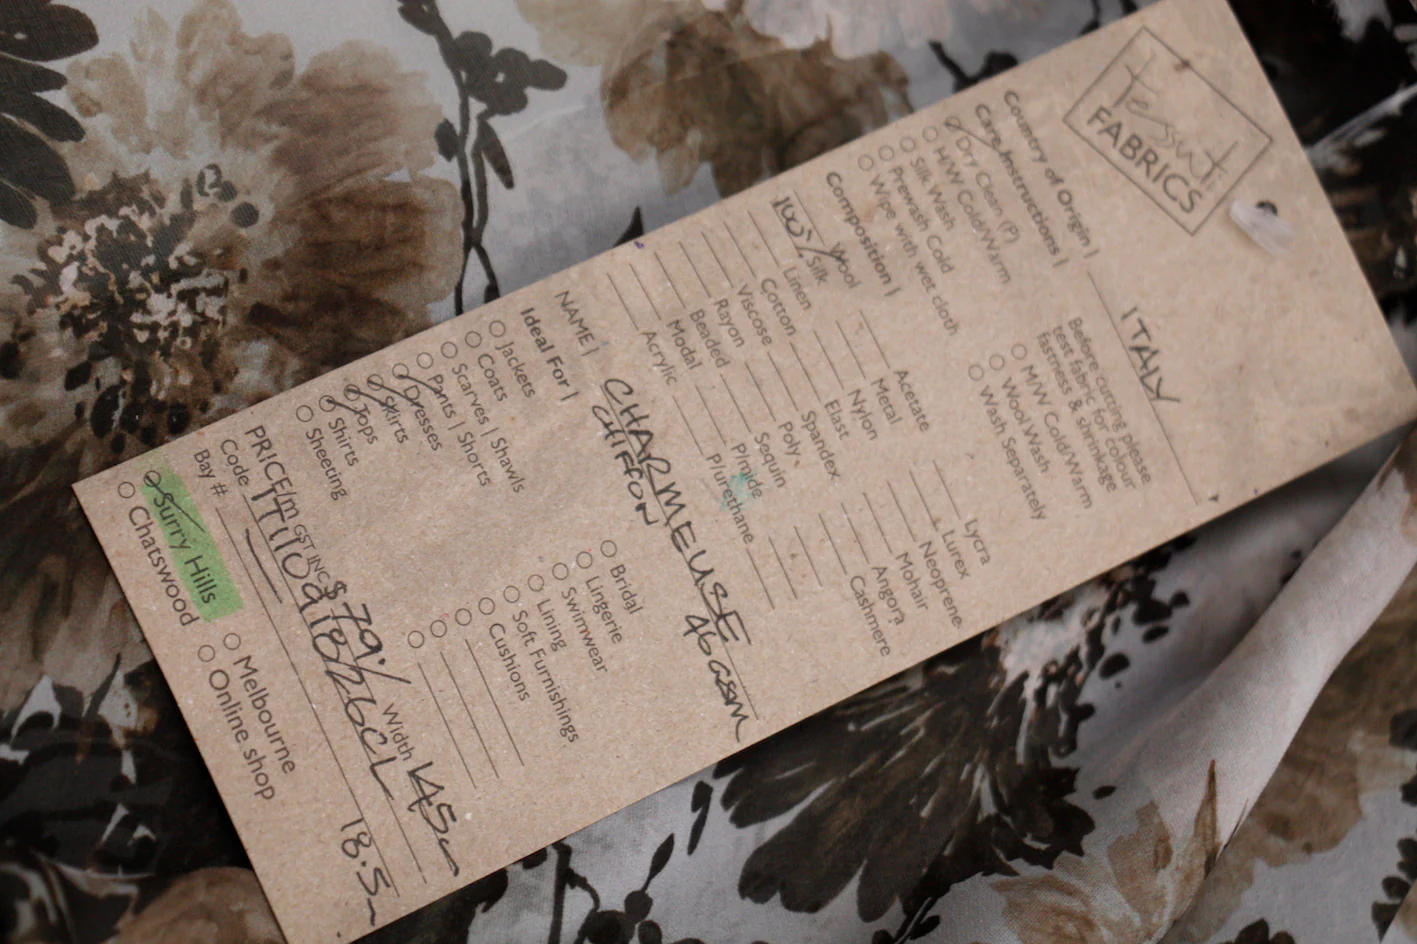 Tessuti
FABRICS
Country of Origin | ITALY
Care Instructions |
Dry Clean (P)
H/W Cold/Warm
Silk Wash
Prewash Cold
Wipe with wet cloth
Before cutting please
test fabric for colour
fastness & shrinkage
M/W Cold/Warm
Wool Wash
Wash Separately
Composition |
Wool
100% Silk
Linen
Cotton
Viscose
Rayon
Beaded
Modal
Acrylic
Acetate
Metal
Nylon
Elast
Spandex
Poly
Sequin
Pmide
Plurethane
Lycra
Lurex
Neoprene
Mohair
Angora
Cashmere
NAME | CHARMEUSE
CHIFFON 46GSM
Ideal For |
Jackets
Coats
Scarves | Shawls
Pants | Shorts
Dresses
Skirts
Tops
Shirts
Sheeting
Bridal
Lingerie
Swimwear
Lining
Soft Furnishings
Cushions
PRICE/m GST INC $79./ Width 145cm
Code
Bay # 18.5m
Surry Hills
Chatswood
Melbourne
Online shop